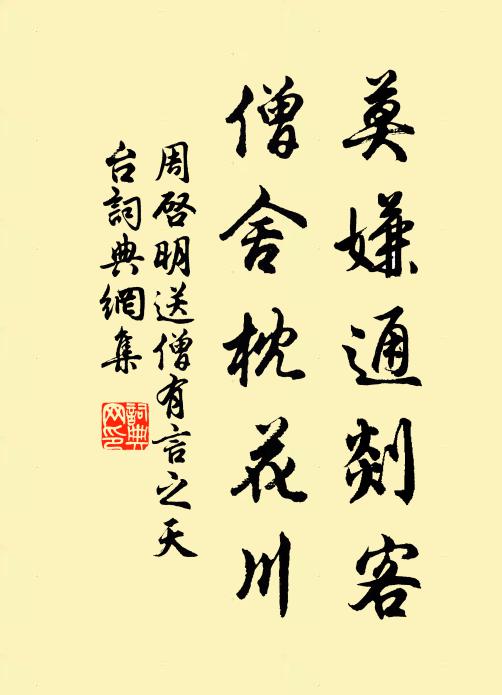 莫嫌通剡客
僧舍枕花川
周啓明送僧有言之天
台詞典網集
詞典
网印